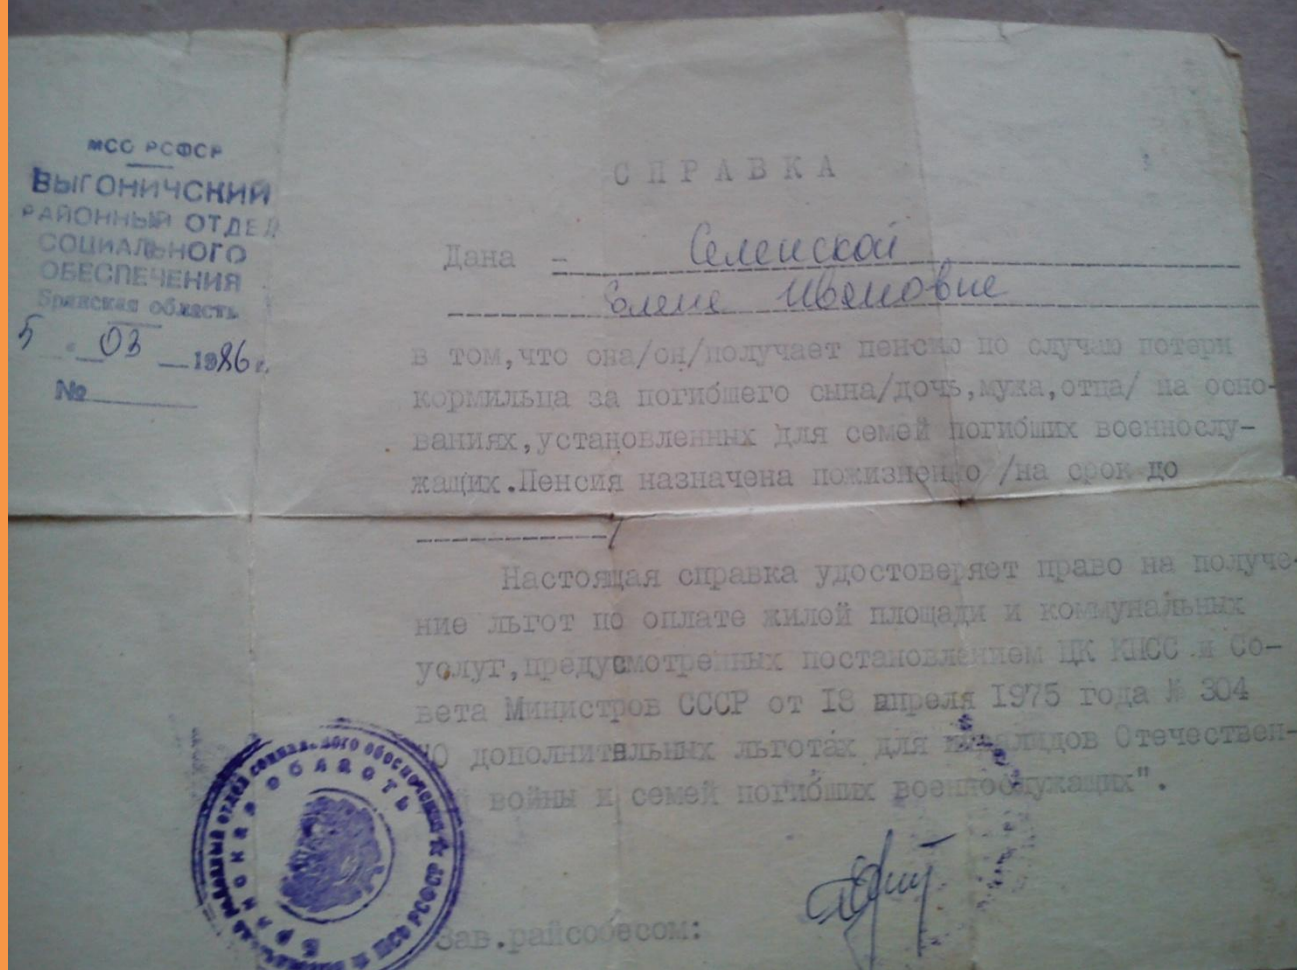 МСО РСФСР
ВЫГОНИЧСКИЙ
РАЙОННЫЙ ОТДЕЛ
СОЦИАЛЬНОГО
ОБЕСПЕЧЕНИЯ
Брянская область
5 " 03 1986 г.
№
СПРАВКА
Дана -
Елене Ивановне
в том,что она/он/получает пенсию по случаю потери
кормильца за погибшего сына/дочь,мужа,отца/ на осно-
ваниях,установленных для семей погибших военнослу-
жащих.Пенсия назначена пожизненно /на срок до
/
Настоящая справка удостоверяет право на получе-
ние льгот по оплате жилой площади и коммунальных
услуг,предусмотренных постановлением ЦК КПСС и Со-
вета Министров СССР от 18 апреля 1975 года № 304
"О дополнительных льготах для инвалидов Отечествен-
войны и семей погибших военнослужащих".
районный отдел социального обеспечения ★ МСО РСФСР ★
БРЯНСКАЯ ОБЛАСТЬ
Зав.райсобесом: